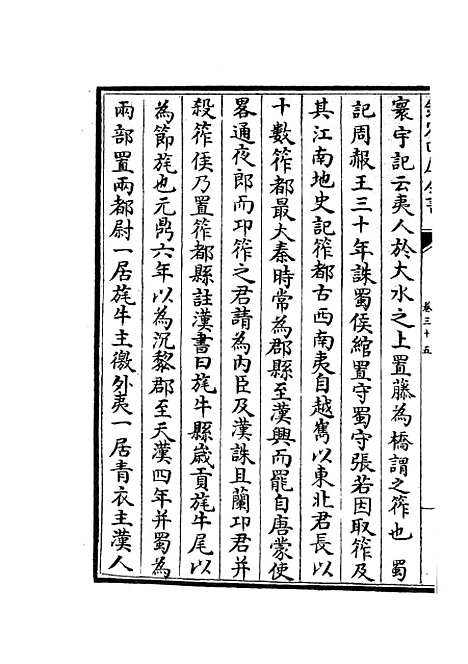 欽定四庫全書
卷三十五
寰宇記云夷人於大水之上置藤為橋謂之筰也　蜀
記周赧王三十年誅蜀侯綰置守蜀守張若因取筰及
其江南地史記筰都古西南夷自越嶲以東北君長以
十數筰都最大秦時常為郡縣至漢興而罷自唐蒙使
畧通夜郎而卭筰之君請為内臣及漢誅且蘭卭君并
殺筰侯乃置筰都縣註漢書曰旄牛縣歲貢旄牛尾以
為節旄也元鼎六年以為沉黎郡至天漢四年并蜀為
兩部置兩都尉一居旄牛主徼外夷一居青衣主漢人